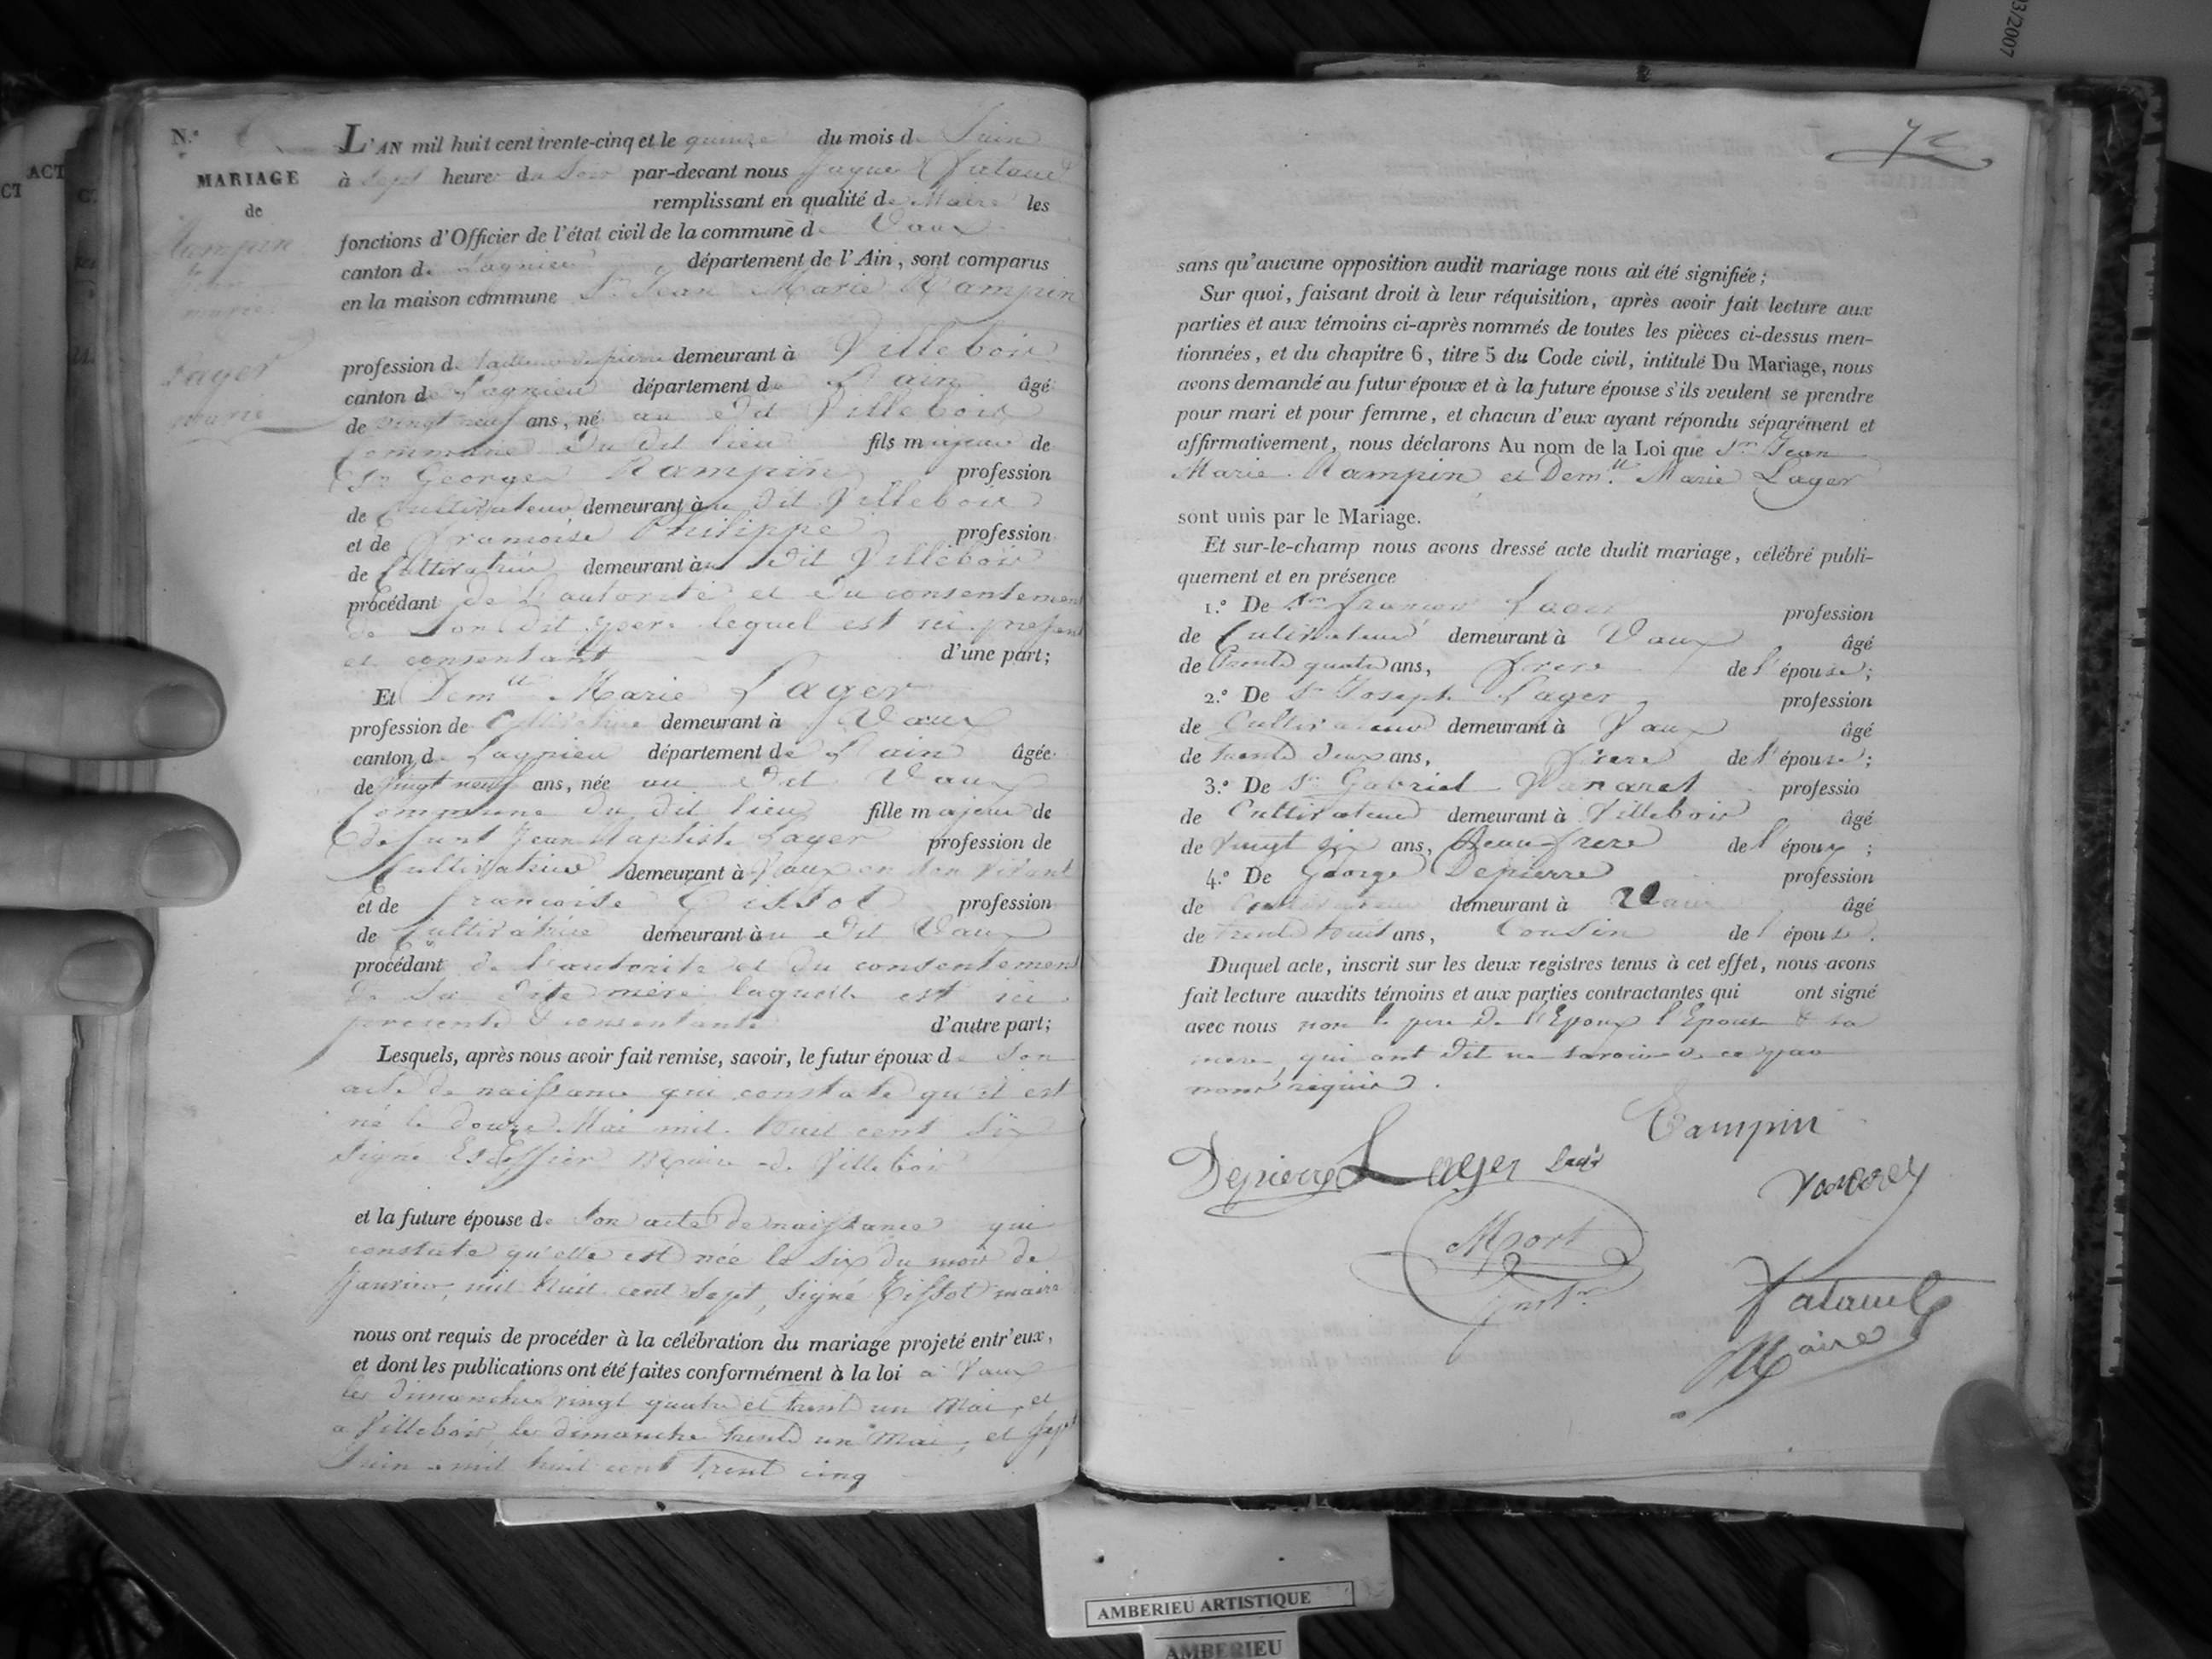 N.º
MARIAGE
de
Rampin
Jean
marie
Lager
marie
L'AN mil huit cent trente-cinq et le quinze du mois de Juin
à sept heure du Soir par-devant nous Jaques
remplissant en qualité de Maire les
fonctions d'Officier de l'état civil de la commune de Vaux
canton de Lagnieu département de l'Ain, sont comparus
en la maison commune Sr Jean Marie Rampin
profession de tailleur de pierre demeurant à Villebois
canton de Lagnieu département de L'ain âgé
de vingt neuf ans, né au dit Villebois
commune du dit lieu fils majeur de
Sr George Rampin profession
de Cultivateur demeurant au dit Villebois
et de francoise Philippe profession
de Cultivatrice demeurant au dit Villebois
procédant de L'autorité et du consentement
de Son dit pere lequel est ici present
et consentant d'une part;
Et Demlle Marie Lager
profession de Cultivatrice demeurant à Vaux
canton de Lagnieu département de L'ain âgée
de vingt neuf ans, née au dit Vaux
commune du dit lieu fille majeure de
defunt Jean Baptiste Lager profession de
Cultivateur demeurant à Vaux en son vivant
et de francoise Tissot profession
de Cultivatrice demeurant au dit Vaux
procédant de l'autorité et du consentement
de sa dite mère laquelle est ici
presente & consentante d'autre part;
Lesquels, après nous avoir fait remise, savoir, le futur époux de Son
acte de naissance qui constate qu'il est
né le douze Mai mil huit cent six
signé Maire de Villebois
et la future épouse de Son acte de naissance qui
constate qu'elle est née le six du mois de
Janvier, mil huit cent sept, signé Tissot maire
nous ont requis de procéder à la célébration du mariage projeté entr'eux,
et dont les publications ont été faites conformément à la loi a Vaux
les dimanches vingt quatre et trente un Mai, et
a Villebois, les dimanche trente un Mai, et sept
Juin mil huit cent trente cinq
sans qu'aucune opposition audit mariage nous ait été signifiée;
Sur quoi, faisant droit à leur réquisition, après avoir fait lecture aux
parties et aux témoins ci-après nommés de toutes les pièces ci-dessus men-
tionnées, et du chapitre 6, titre 5 du Code civil, intitulé Du Mariage, nous
avons demandé au futur époux et à la future épouse s'ils veulent se prendre
pour mari et pour femme, et chacun d'eux ayant répondu séparément et
affirmativement, nous déclarons Au nom de la Loi que Sr Jean
Marie Rampin et Demlle Marie Lager
sont unis par le Mariage.
Et sur-le-champ nous avons dressé acte dudit mariage, célébré publi-
quement et en présence
1.º De Sr francois Lager profession
de Cultivateur demeurant à Vaux âgé
de trente quatre ans, frere de l'épouse;
2.º De Sr Joseph Lager profession
de Cultivateur demeurant à Vaux âgé
de trente deux ans, frere de l'épouse;
3.º De Sr Gabriel Vanarel professio
de Cultivateur demeurant à Villebois âgé
de vingt six ans, Beau frere de l'époux;
4.º De George Depierre profession
de Cultivateur demeurant à Vaux âgé
de trente huit ans, Cousin de l'épouse.
Duquel acte, inscrit sur les deux registres tenus à cet effet, nous avons
fait lecture auxdits témoins et aux parties contractantes qui ont signé
avec nous non le pere de l'Epoux l'Epouse & sa
mere, qui ont dit ne savoir de ce par
nous requis.
Rampin
Depierre Lager
Mport
Maire
AMBERIEU ARTISTIQUE
AMBERIEU
03/2007
ACT
ACT